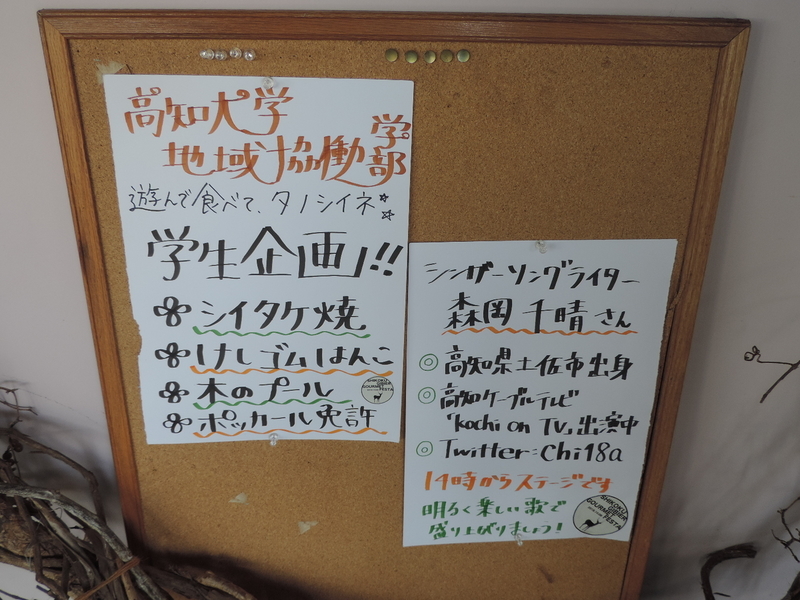 高知大学
地域協働学部
遊んで食べて、タノシイネ☆☆
学生企画!!
シイタケ焼
けしゴムはんこ
木のプール
ポッカール免許
SHIKOKU GIBIER GOURMET FESTA
シンガーソングライター
森岡 千晴さん
◎高知県土佐市出身
◎高知ケーブルテレビ
"kochi on TV"出演中
◎Twitter:chi18a
14時からステージです
明るく楽しい歌で
盛り上がりましょう!
SHIKOKU GIBIER GOURMET FESTA